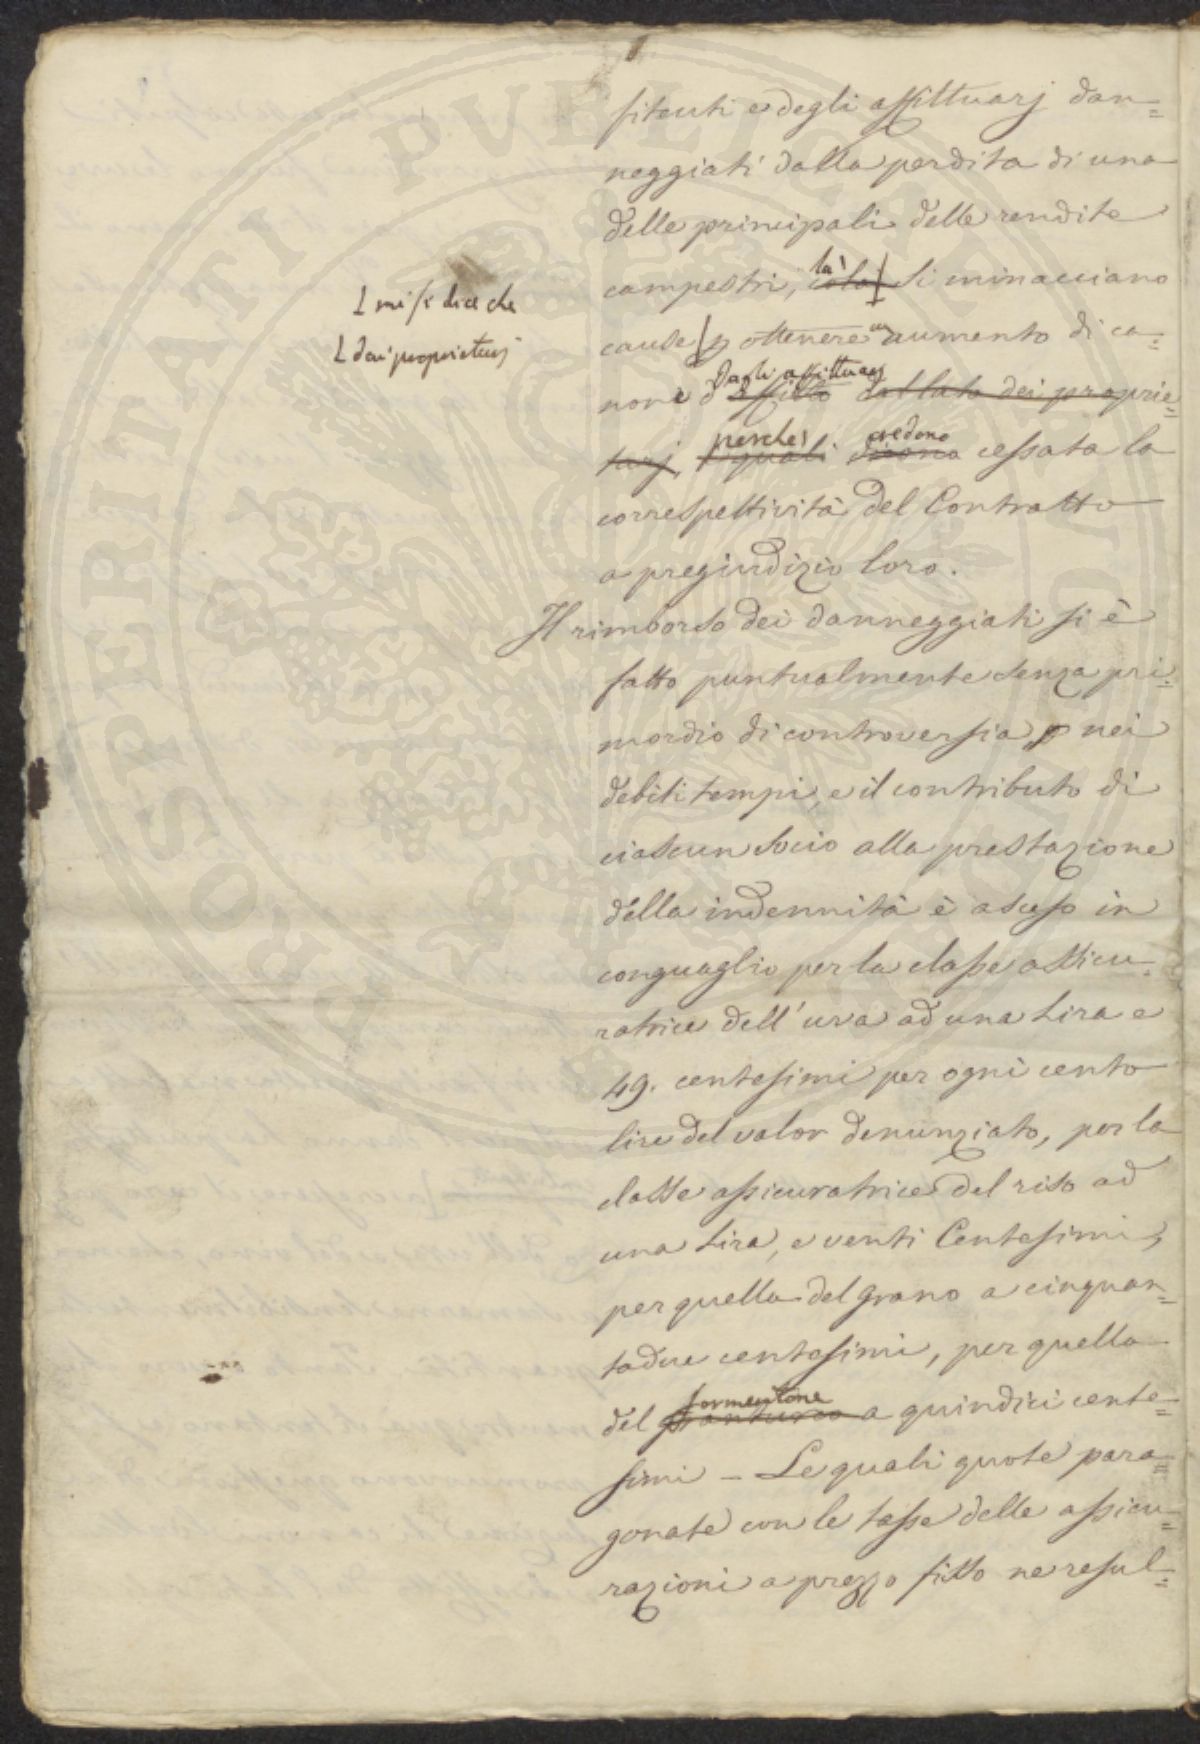 sitenti e degli affittuarj dan=
neggiati dalla perdita di una
delle principali delle rendite
campestri, colà là si minacciano
mi si dice che
cause p ottenere un aumento di ca=
dai proprietarj
none d'affitto dagli affittuarj dal lato dei proprie=
tarj, i quali perchè dicono credono cessata la
correspettività del Contratto
a pregiudizio loro.
Il rimborso dei danneggiati si è
fatto puntualmente senza pri=
mordio di controversia, nei
debiti tempi, e il contributo di
ciascun socio alla prestazione
della indennità è asceso in
conguaglio per la classe assicu=
ratrice dell'uva ad una Lira e
49. centesimi per ogni cento
lire del valor denunziato, per la
classe assicuratrice del riso ad
una Lira, e venti Centesimi,
per quella del grano a cinquan=
tadue centesimi, per quella
del granturco formentone a quindici cente=
simi – Le quali quote para=
gonate con le tasse delle assicu=
razioni a prezzo fisso ne resul=
PROSPERITATI PUBLICAE